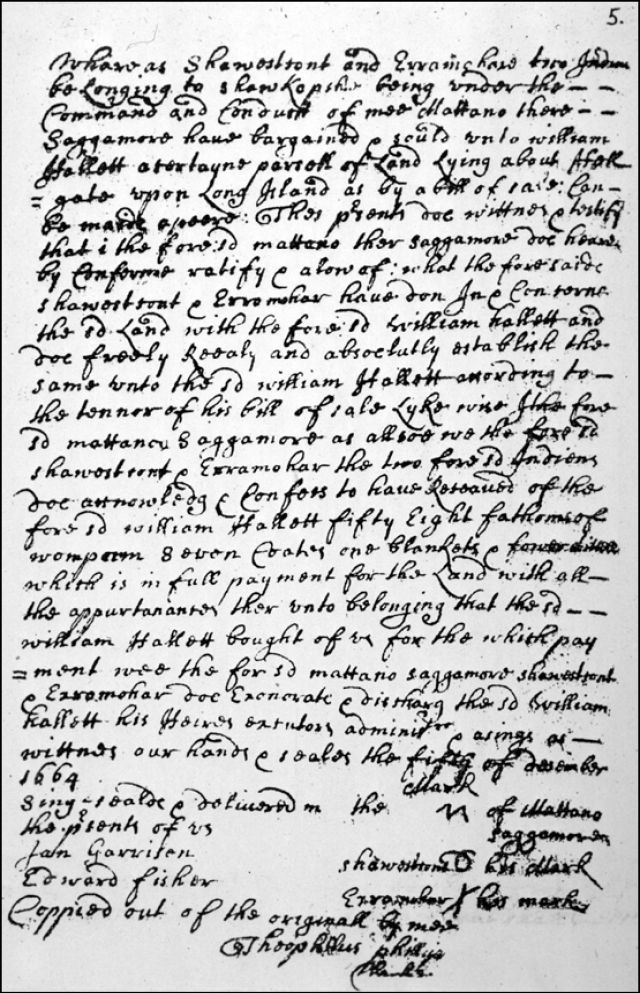 5.
Whare as Shawestcont and Erramohare two Indien
be Longing to Shawkopshe being vnder the – –
Command and Conduct of mee Mattano there – –
Saggamore have bargained & sould vnto william
Hallett a certayne parsell of Land Lying about Hell
= gate vpon Long Island as by a bill of sale: Can–
be made apeere: Thes prsents doe wittnes & testify
that i the fore sd mattano ther saggamore doe heare
by Conforme ratify & alow of: what the fore saide
shawestcont & Erromohar have don In & Conserne
the sd Land with the fore sd William hallett and
doe freely Reealy and absolutly establish the
same vnto the sd william Hallett according to –
the tennor of his bill of sale Lyke wise I the fore
sd mattano Saggamore as allsoe we the fore sd
shawestcont & Erramohar the two fore sd Indiens
doe acknowledg & Confess to have Reseaved of the
fore sd william Hallett fifty Eight fathom of
wompum Seven Coates one blankets &
which is in full payment for the Land with all –
the appurtanantes ther vnto belonging that the sd – –
william Hallett bought of vs for the which pay
= ment wee the for sd mattano saggamore shawestcont
& Erromohar doe Exonorate & discharg the sd William
hallett his Heires exsutors adminisr & asings as –
wittnes our hands & seales the fifth of desember
1664
Mark
Sing – sealde & delivered in the of Mattano
the prsents of vs Saggamore
Jan Garrisen
shawestcont his Mark
Edward fisher
Erramohar his mark
Coppied out of the originall by mee
Theophillus phillips
Clark